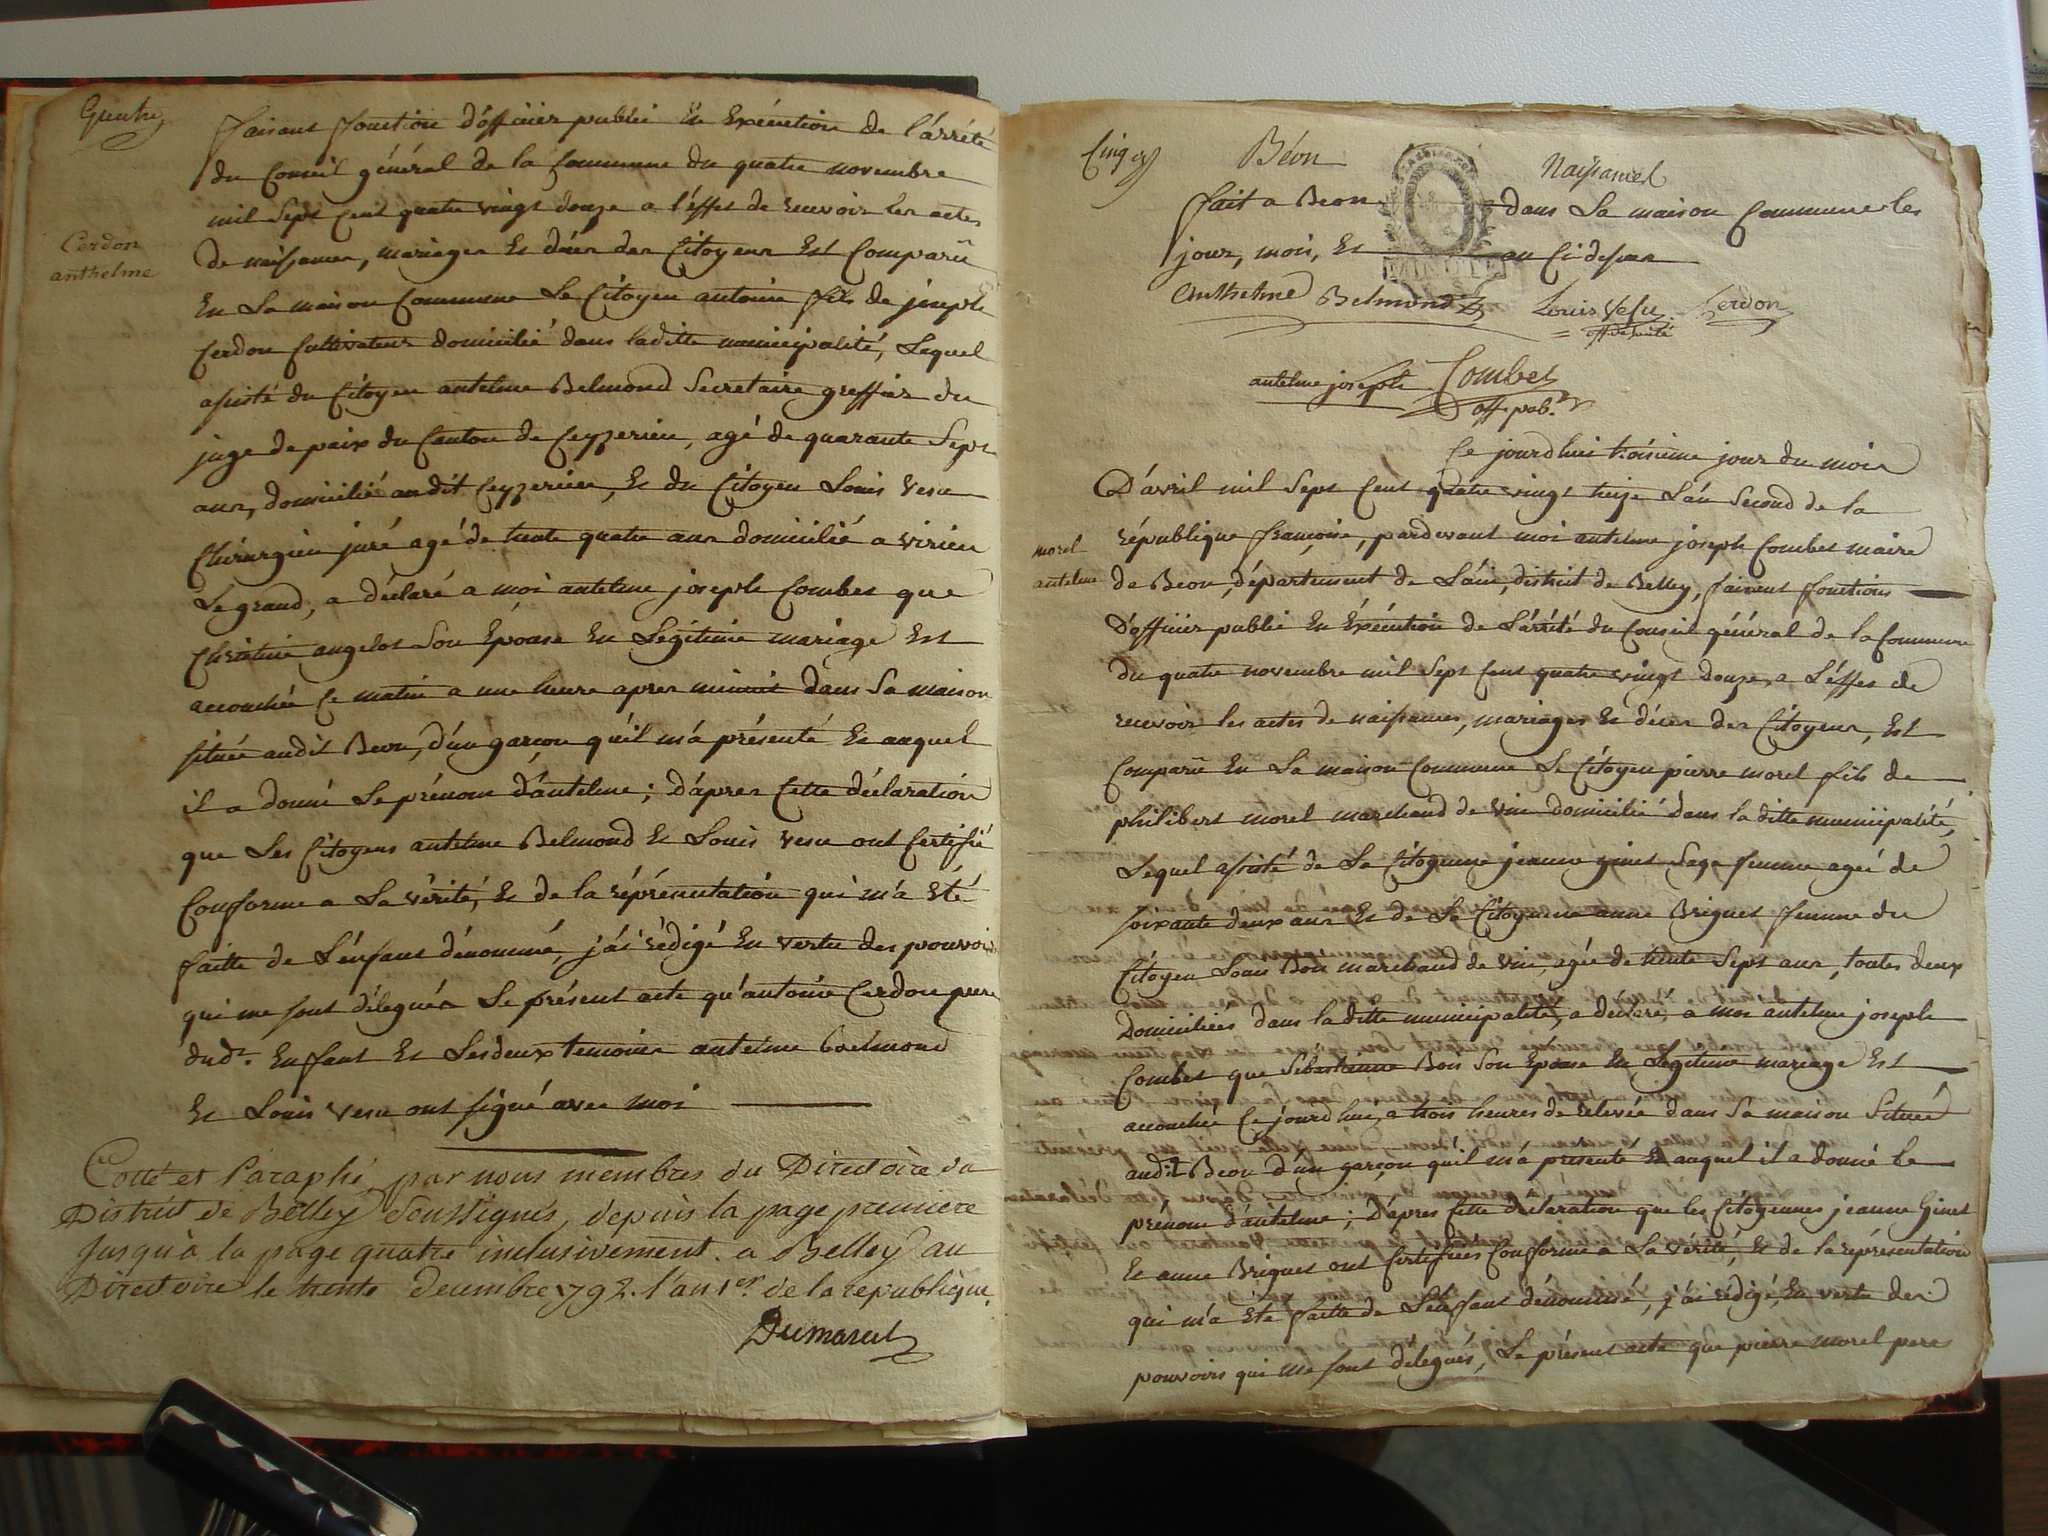 Quatre
faisant fonction d'officier public En Exécution de l'árrété
du Conseil général de la Commune du quatre novembre
mil Sept Cent quatre vingt douze a l'éffet de recevoir les actes
Cerdon
anthelme
de naissances, mariages Et décès des Citoyens Est Comparû
En La maison Commune Le Citoyen antoine fils de joseph
Cerdon Cultivateur domicilié dans laditte municipalité, Lequel
assisté du Citoyen antelme Belmond Secretaire greffier du
juge de paix du Canton de Ceyzerieu, agé de quarante Sept
ans, domicilié audit Ceyzerieu, Et du Citoyen Louis Vesu
Chirurgien juré agé de trente quatre ans domicilié a virieu
Le grand, a déclaré a moi antelme joseph Combet que
Christine angelot Son Epouse En Légitime mariage Est
accouchée Ce matin a une heure apres minuit dans Sa maison
située audit Beon, d'un garçon qu'il m'a présenté Et auquel
il a donné Le prénom d'ántelme; d'ápres Cette déclaration
que Les Citoyens antelme Belmond Et Louis Vesu ont Certifié
Conforme a La vérité, Et de la réprésentation qui m'a été
faitte de L'énfant dénommé, j'ái rédigé En vertu des pouvoirs
qui me sont délegués Le présent acte qu'antoine Cerdon pere
dudt. Enfant Et Les deux temoins antelme Belmond
Et Louis Vesu ont signé avec moi
Cotté et Paraphé par nous membres du Directoire du
District de Belley Soussignés, depuis la page premiere
Jusqu'à la page quatre inclusivement. a Belley au
Directoire le trente decembre 1792. l'an 1er. de la republique.
Dumarest
Cinq
Béon
Naissances
fait a Beon dans La maison Commune les
jour, mois, Et an Ci dessus
Anthelme Belmond Louis Vesu Cerdon
off de santé
antelme joseph Combet
off. pub.
Ce jourd'hui troisieme jour du mois
D'avril mil Sept Cent quatre vingt treize L'án Second de la
morel
antelme
république françoise, pardevant moi antelme joseph Combet maire
de Beon, département de L'áin, district de Belley, faisant fonctions
d'officier public En Exécution de L'árrété du Conseil général de la Commune
du quatre novembre mil Sept Cent quatre vingt douze, a L'éffet de
recevoir les actes de naissances, mariages Et décès des Citoyens, Est
Comparû En La maison Commune Le Citoyen pierre morel fils de
philibert morel marchand de vin domicilié dans la ditte municipalité,
Lequel assisté de La Citoyenne jeanne ginet Sage femme agée de
soixante deux ans Et de La Citoyenne anne Briguet femme du
Citoyen Louis Bon marchand de vin, agée de trente Sept ans, toutes deux
Domiciliées dans la ditte municipalité, a déclaré a moi antelme joseph
Combet que Sébastienne Bon Son Epouse En Légitime mariage Est
accouchée Ce jourd'hui, a trois heures de relevée dans Sa maison Située
audit Beon d'un garçon qu'il m'a présenté Et auquel il a donné Le
prénom d'ántelme; d'ápres Cette déclaration que les Citoyennes jeanne Ginet
Et anne Briguet ont Certifiées Conforme a La vérité, Et de la réprésentation
qui m'a été faitte de L'énfant dénommé, j'ái rédigé, En vertu des
pouvoirs qui me sont délegués, Le présent acte que pierre morel pere